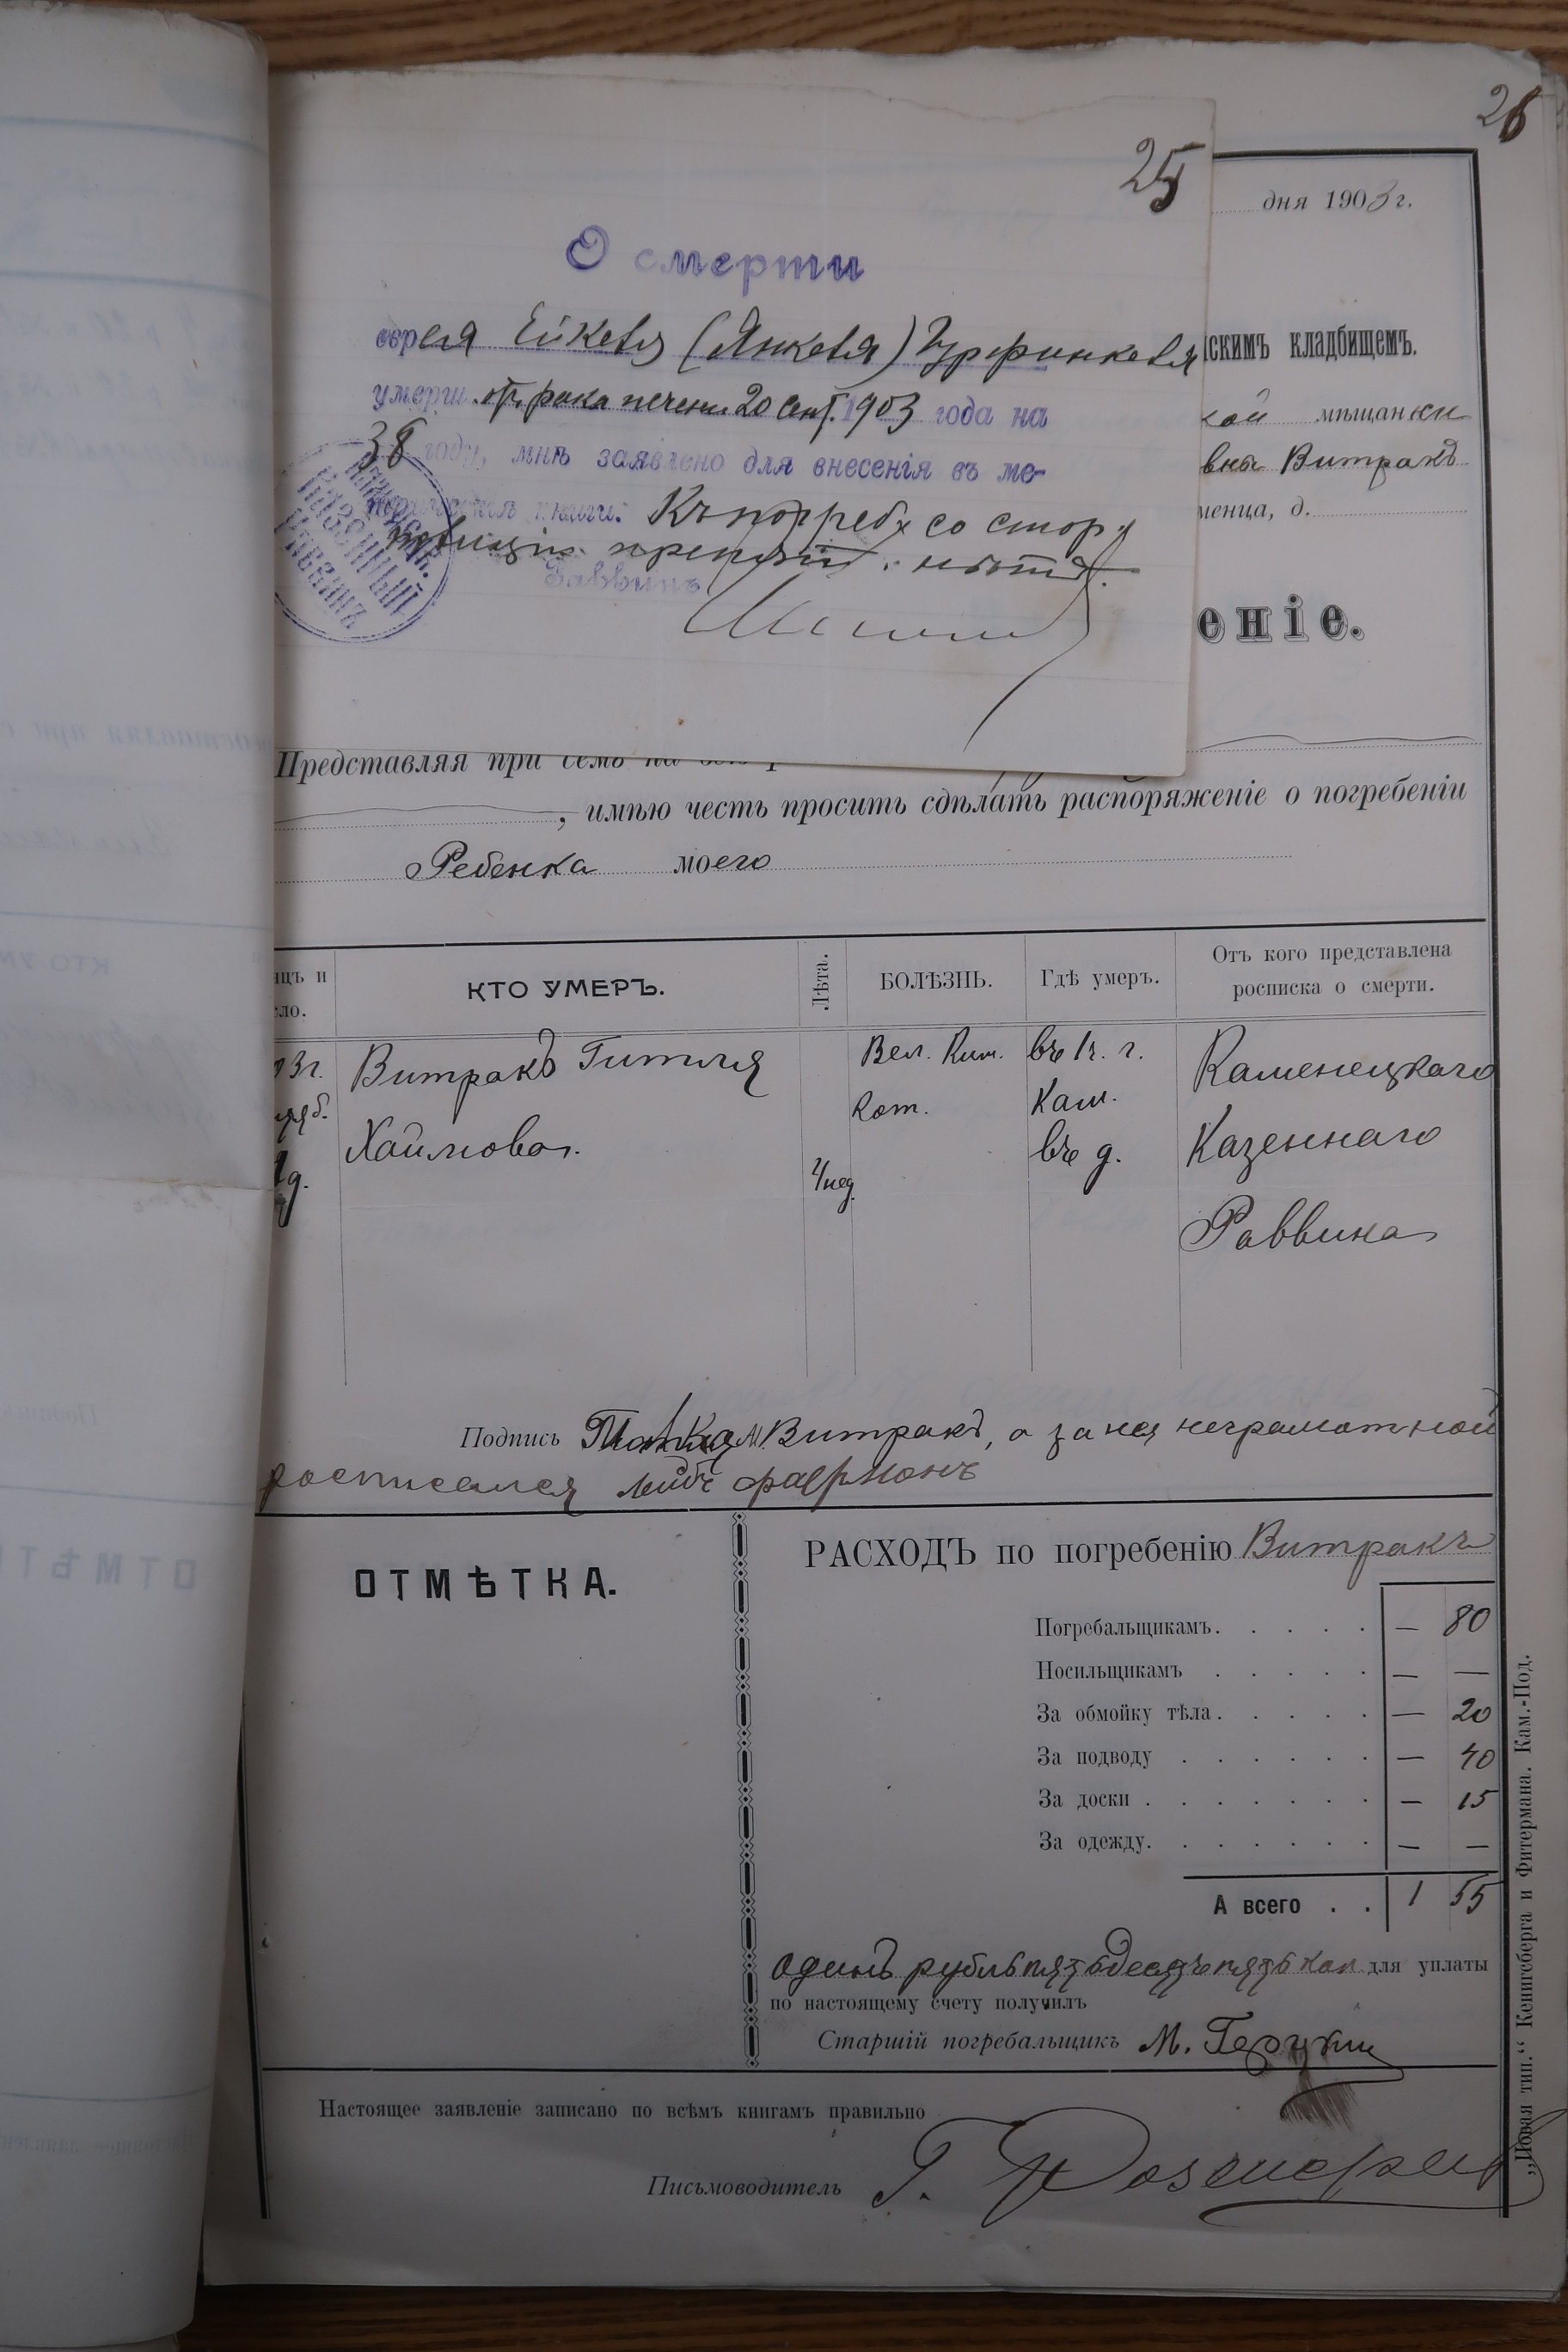 26
25
дня 1903 г.
О смерти
еврея Ейкевя (Янкевя) Гурфинкевя
скимъ кладбищемъ.
умерш. от рака печени 20 Сент. 1903 года на
кой мѣщанки
38 году, мнѣ заявлено для внесенія въ ме-
вны Витракъ
трическія книги. Къ погреб. со стор.
менца, д.
полиціи препят. нѣтъ.
Раввинъ
КАЗЕННЫЙ
РАВВИНЪ
еніе.
Представляя при семъ на
, имѣю честь просить сдѣлать распоряженіе о погребеніи
Ребенка моего
яцъ и
сло.
КТО УМЕРЪ.
Лѣта.
БОЛѢЗНЬ.
Гдѣ умеръ.
Отъ кого представлена
росписка о смерти.
3 г.
Витракъ Гитля
Вел. Ким.
въ К. г.
Каменецкаго
Кот.
Кам.
Хаимова.
въ д.
Казеннаго
д.
4 нед.
Раввина
Подпись Витракъ, а за нея неграмотной
росписался Лейбъ Фаерманъ
ОТМѢТКА.
РАСХОДЪ по погребенію Витракъ
Погребальщикамъ. — 80
Носильщикамъ — —
За обмойку тѣла. — 20
За подводу — 40
За доски — 15
За одежду. — —
А всего . . 1 55
одинъ рубль пятьдесятъ пять коп для уплаты
по настоящему счету получилъ
Старшій погребальщикъ М. Герцкис
Настоящее заявленіе записано по всѣмъ книгамъ правильно
Письмоводитель Г.
„Новая тип.“ Кенигсберга и Фитермана. Кам.-Под.